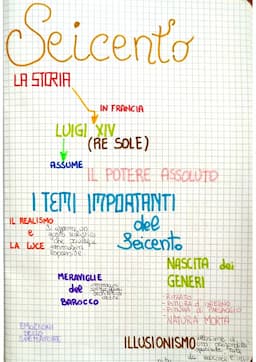 Seicento
LA STORIA
IN FRANCIA
LUIGI XIV
(RE SOLE)
ASSUME
IL POTERE ASSOLUTO
I TEMI IMPORTANTI
del
Seicento
IL REALISMO
e
LA LUCE
MERAVIGLIE
del
BAROCCO
NASCITA dei
GENERI
- RITRATTO
- NATURA MORTA
EMOZIONI
DELLO
SPETTATORE
ILLUSIONISMO